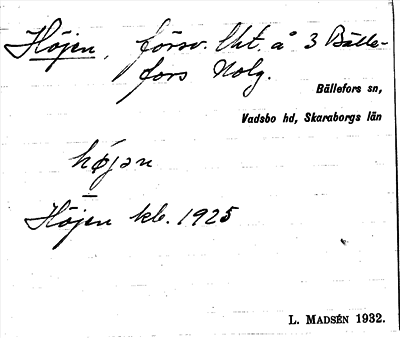 Höjen, försv. lht. å 3 Bälle-
fors Nolg.
Bällefors sn,
Vadsbo hd, Skaraborgs län
højən
Höjen kb. 1925
L. MADSÉN 1932.